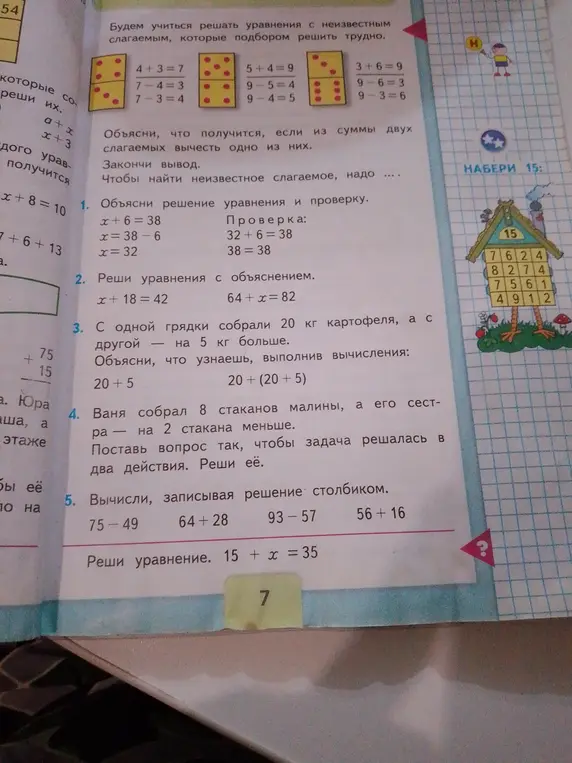 54
которые со
реши их.
a + x
x + 3
дого урав-
получится
x + 8 = 10
7 + 6 + 13
а.
75
+ 15
а. Юра
аша, а
этаже
бы её
ло на
Будем учиться решать уравнения с неизвестным
слагаемым, которые подбором решить трудно.
4 + 3 = 7 5 + 4 = 9 3 + 6 = 9
7 − 4 = 3 9 − 5 = 4 9 − 6 = 3
7 − 3 = 4 9 − 4 = 5 9 − 3 = 6
Объясни, что получится, если из суммы двух
слагаемых вычесть одно из них.
Закончи вывод.
Чтобы найти неизвестное слагаемое, надо ... .
1. Объясни решение уравнения и проверку.
x + 6 = 38 Проверка:
x = 38 − 6 32 + 6 = 38
x = 32 38 = 38
2. Реши уравнения с объяснением.
x + 18 = 42 64 + x = 82
3. С одной грядки собрали 20 кг картофеля, а с
другой — на 5 кг больше.
Объясни, что узнаешь, выполнив вычисления:
20 + 5 20 + (20 + 5)
4. Ваня собрал 8 стаканов малины, а его сест-
ра — на 2 стакана меньше.
Поставь вопрос так, чтобы задача решалась в
два действия. Реши её.
5. Вычисли, записывая решение столбиком.
75 − 49 64 + 28 93 − 57 56 + 16
Реши уравнение. 15 + x = 35
?
7
Н
НАБЕРИ 15:
15
7 6 2 4
8 2 7 4
7 5 6 1
4 9 1 2